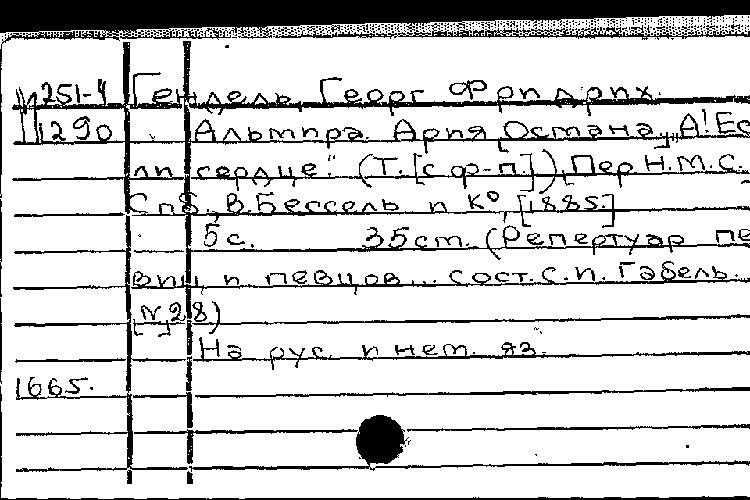 П251-4 Гендель, Георг Фридрих.
1290 Альмира. Ария [Остана] "А! Ес
ли сердце." (Т. [с ф-п.]), Пер Н.М.С.
Спб., В. Бессель и К°, [1885.]
5 с. 35 cm. (Репертуар пе
виц и певцов... сост. С.И. Габель.
[N 28)
На рус. и нем. яз.
1665.